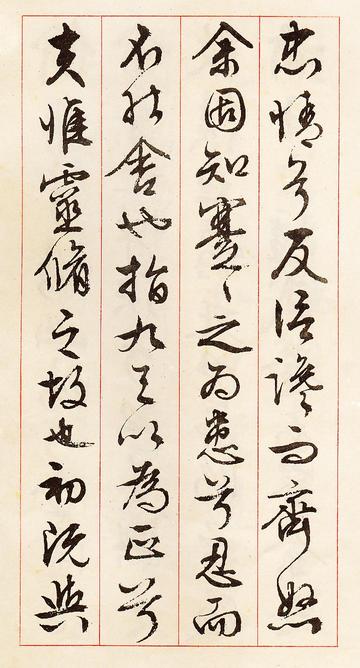 忠情兮反信谗而齊怒
余固知蹇〻之为患兮忍而
不能舍也指九天以為正兮
夫惟靈脩之故也初既與